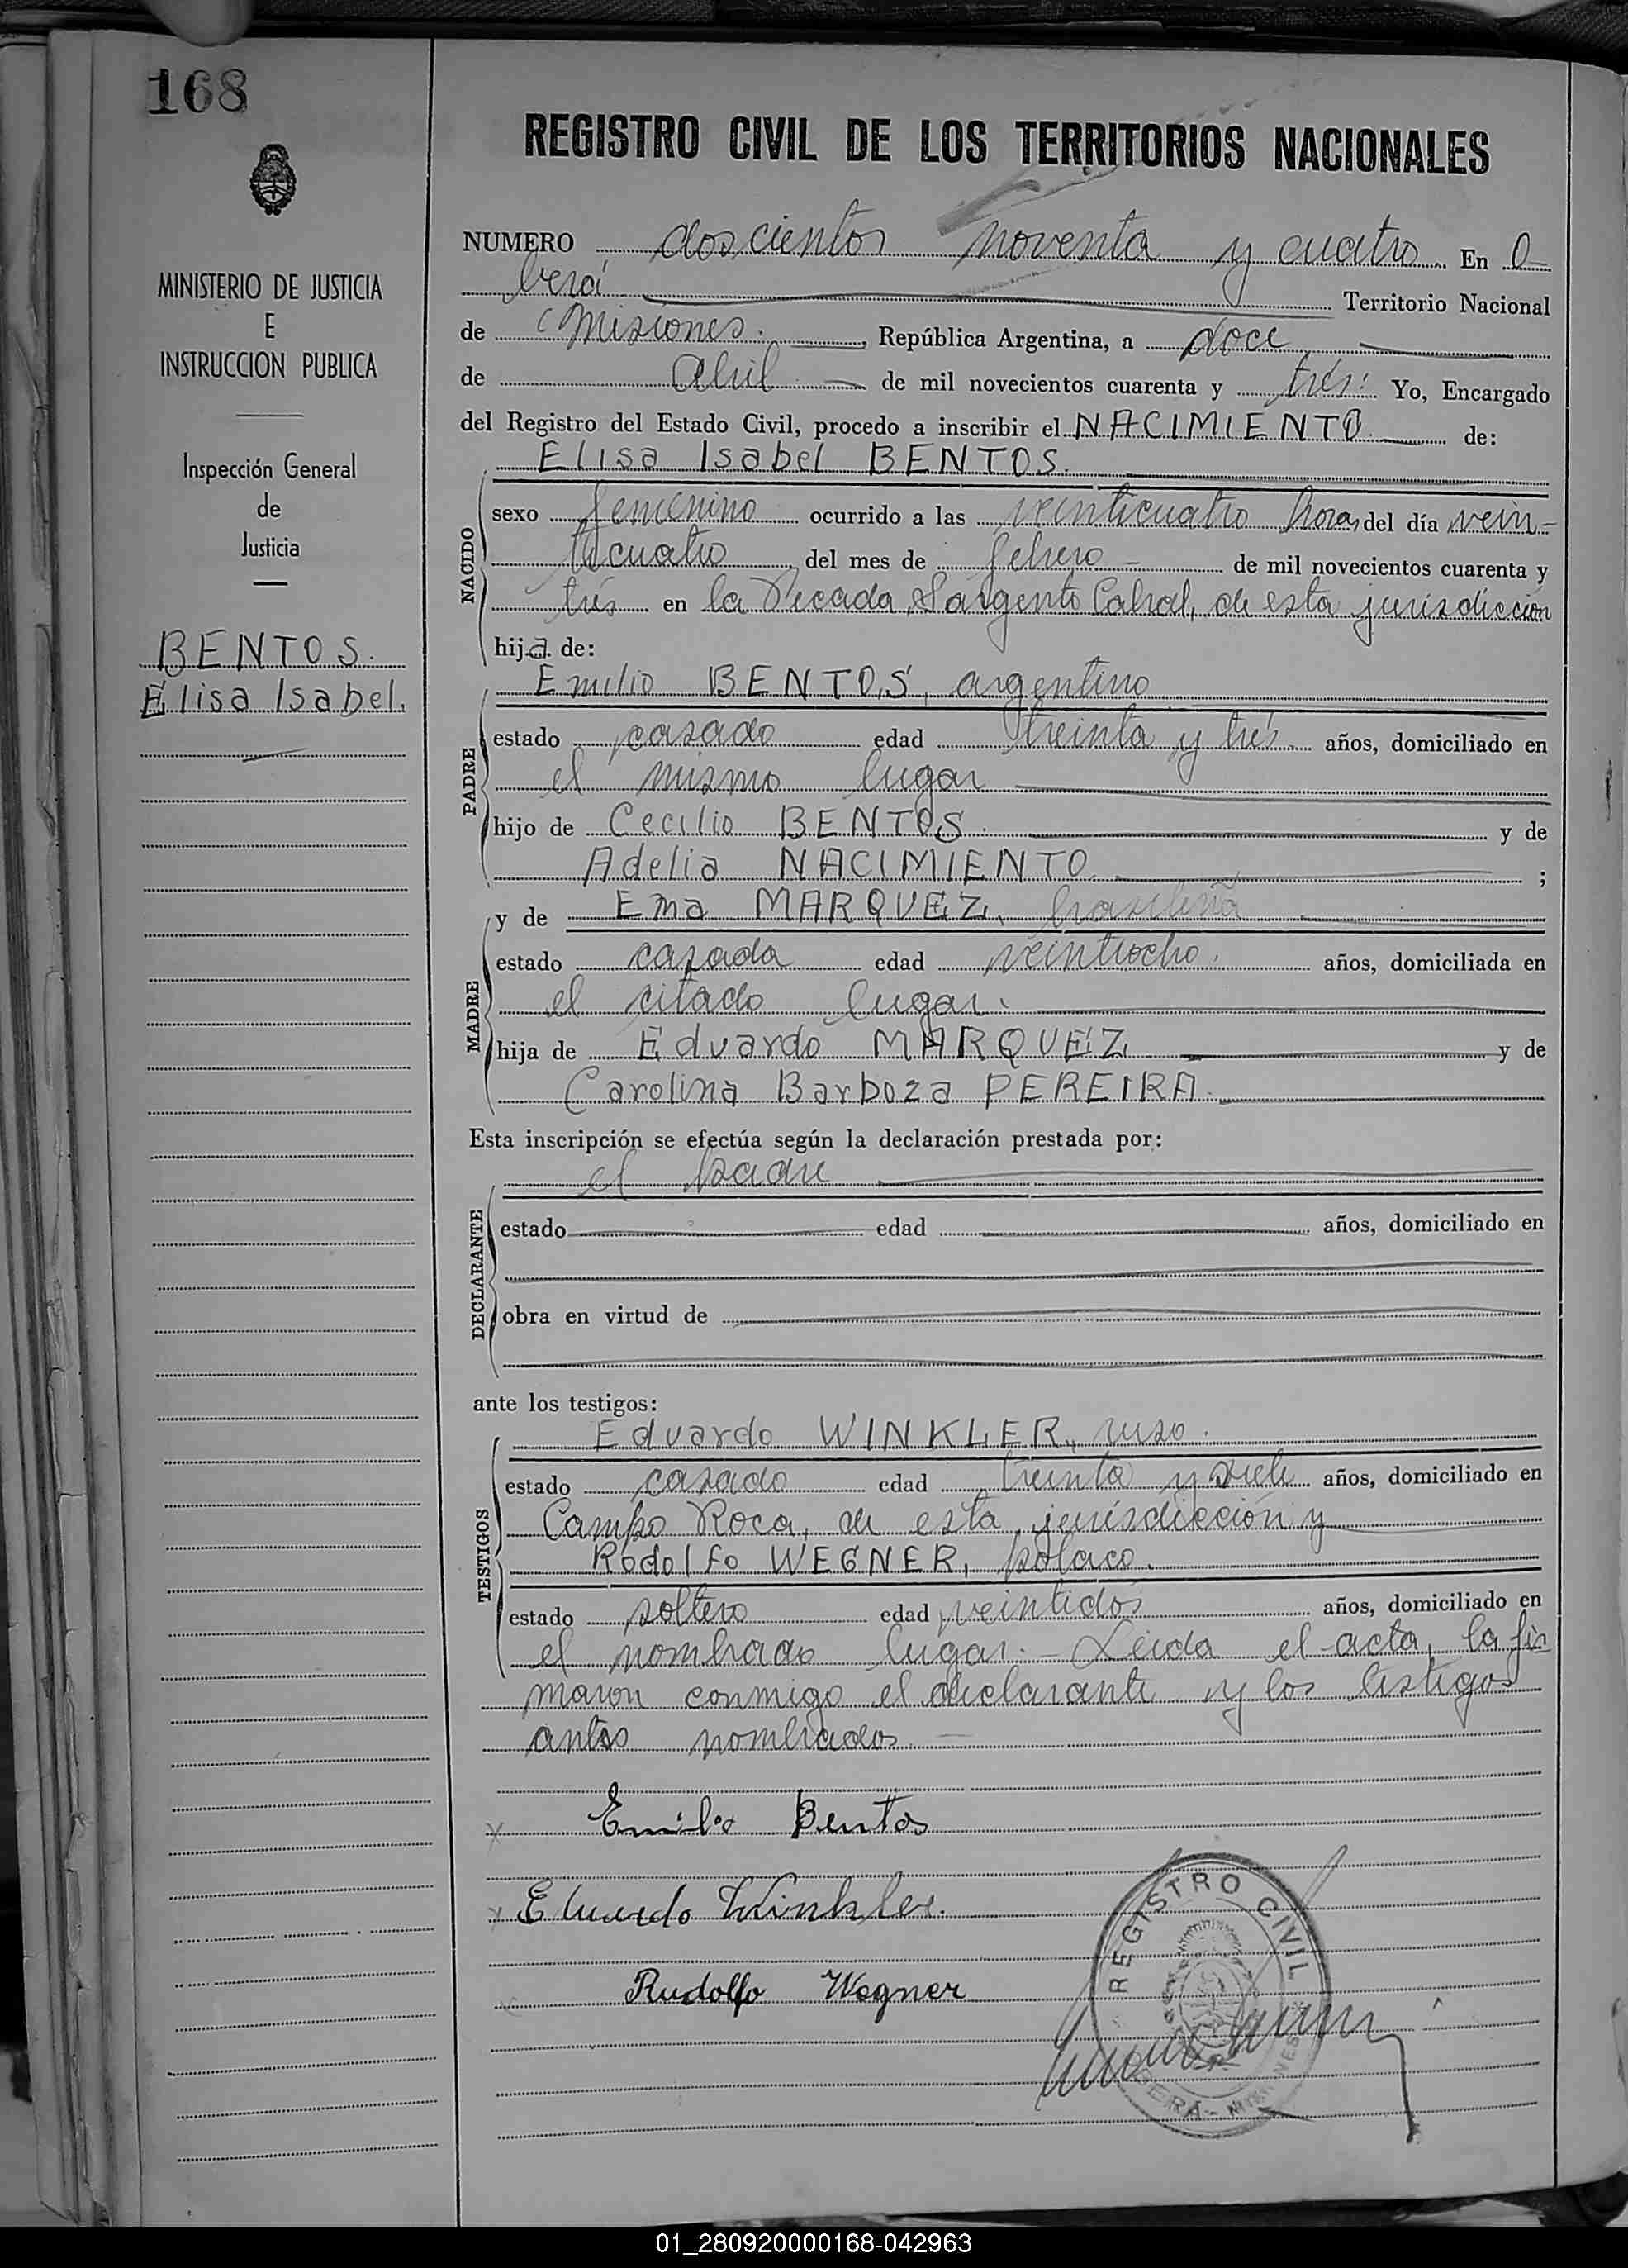 168
REGISTRO CIVIL DE LOS TERRITORIOS NACIONALES
MINISTERIO DE JUSTICIA
E
INSTRUCCION PUBLICA
Inspección General
de
Justicia
BENTOS.
Elisa Isabel.
NUMERO doscientos noventa y cuatro En O-
berá Territorio Nacional
de Misiones. , República Argentina, a doce
de abril de mil novecientos cuarenta y trés: Yo, Encargado
del Registro del Estado Civil, procedo a inscribir el NACIMIENTO de:
Elisa Isabel BENTOS.
NACIDO
sexo femenino ocurrido a las veinticuatro horas del día vein-
ticuatro del mes de febrero - de mil novecientos cuarenta y
trés en la Picada Sargento Cabral, de esta jurisdicción
hija de:
PADRE
Emilio BENTOS, argentino
estado casado edad treinta y trés años, domiciliado en
el mismo lugar
hijo de Cecilio BENTOS. y de
Adelia NACIMIENTO. ;
MADRE
y de Ema MARQUEZ, brasileña
estado casada edad veintiocho. años, domiciliada en
el citado lugar.
hija de Eduardo MARQUEZ y de
Carolina Barboza PEREIRA.
Esta inscripción se efectúa según la declaración prestada por:
DECLARANTE
el padre
estado edad años, domiciliado en
obra en virtud de
ante los testigos:
TESTIGOS
Eduardo WINKLER, ruso.
estado casado edad treinta y siete años, domiciliado en
Campo Roca, de esta jurisdicción y
Rodolfo WEGNER, polaco.
estado soltero edad veintidos años, domiciliado en
el nombrado lugar. - Leida el acta, la fir
maron conmigo el declarante y los testigos
antes nombrados. -
x Emilio Bentos
x Eduardo Winkler.
x Rudolfo Wegner
REGISTRO CIVIL
01_280920000168-042963